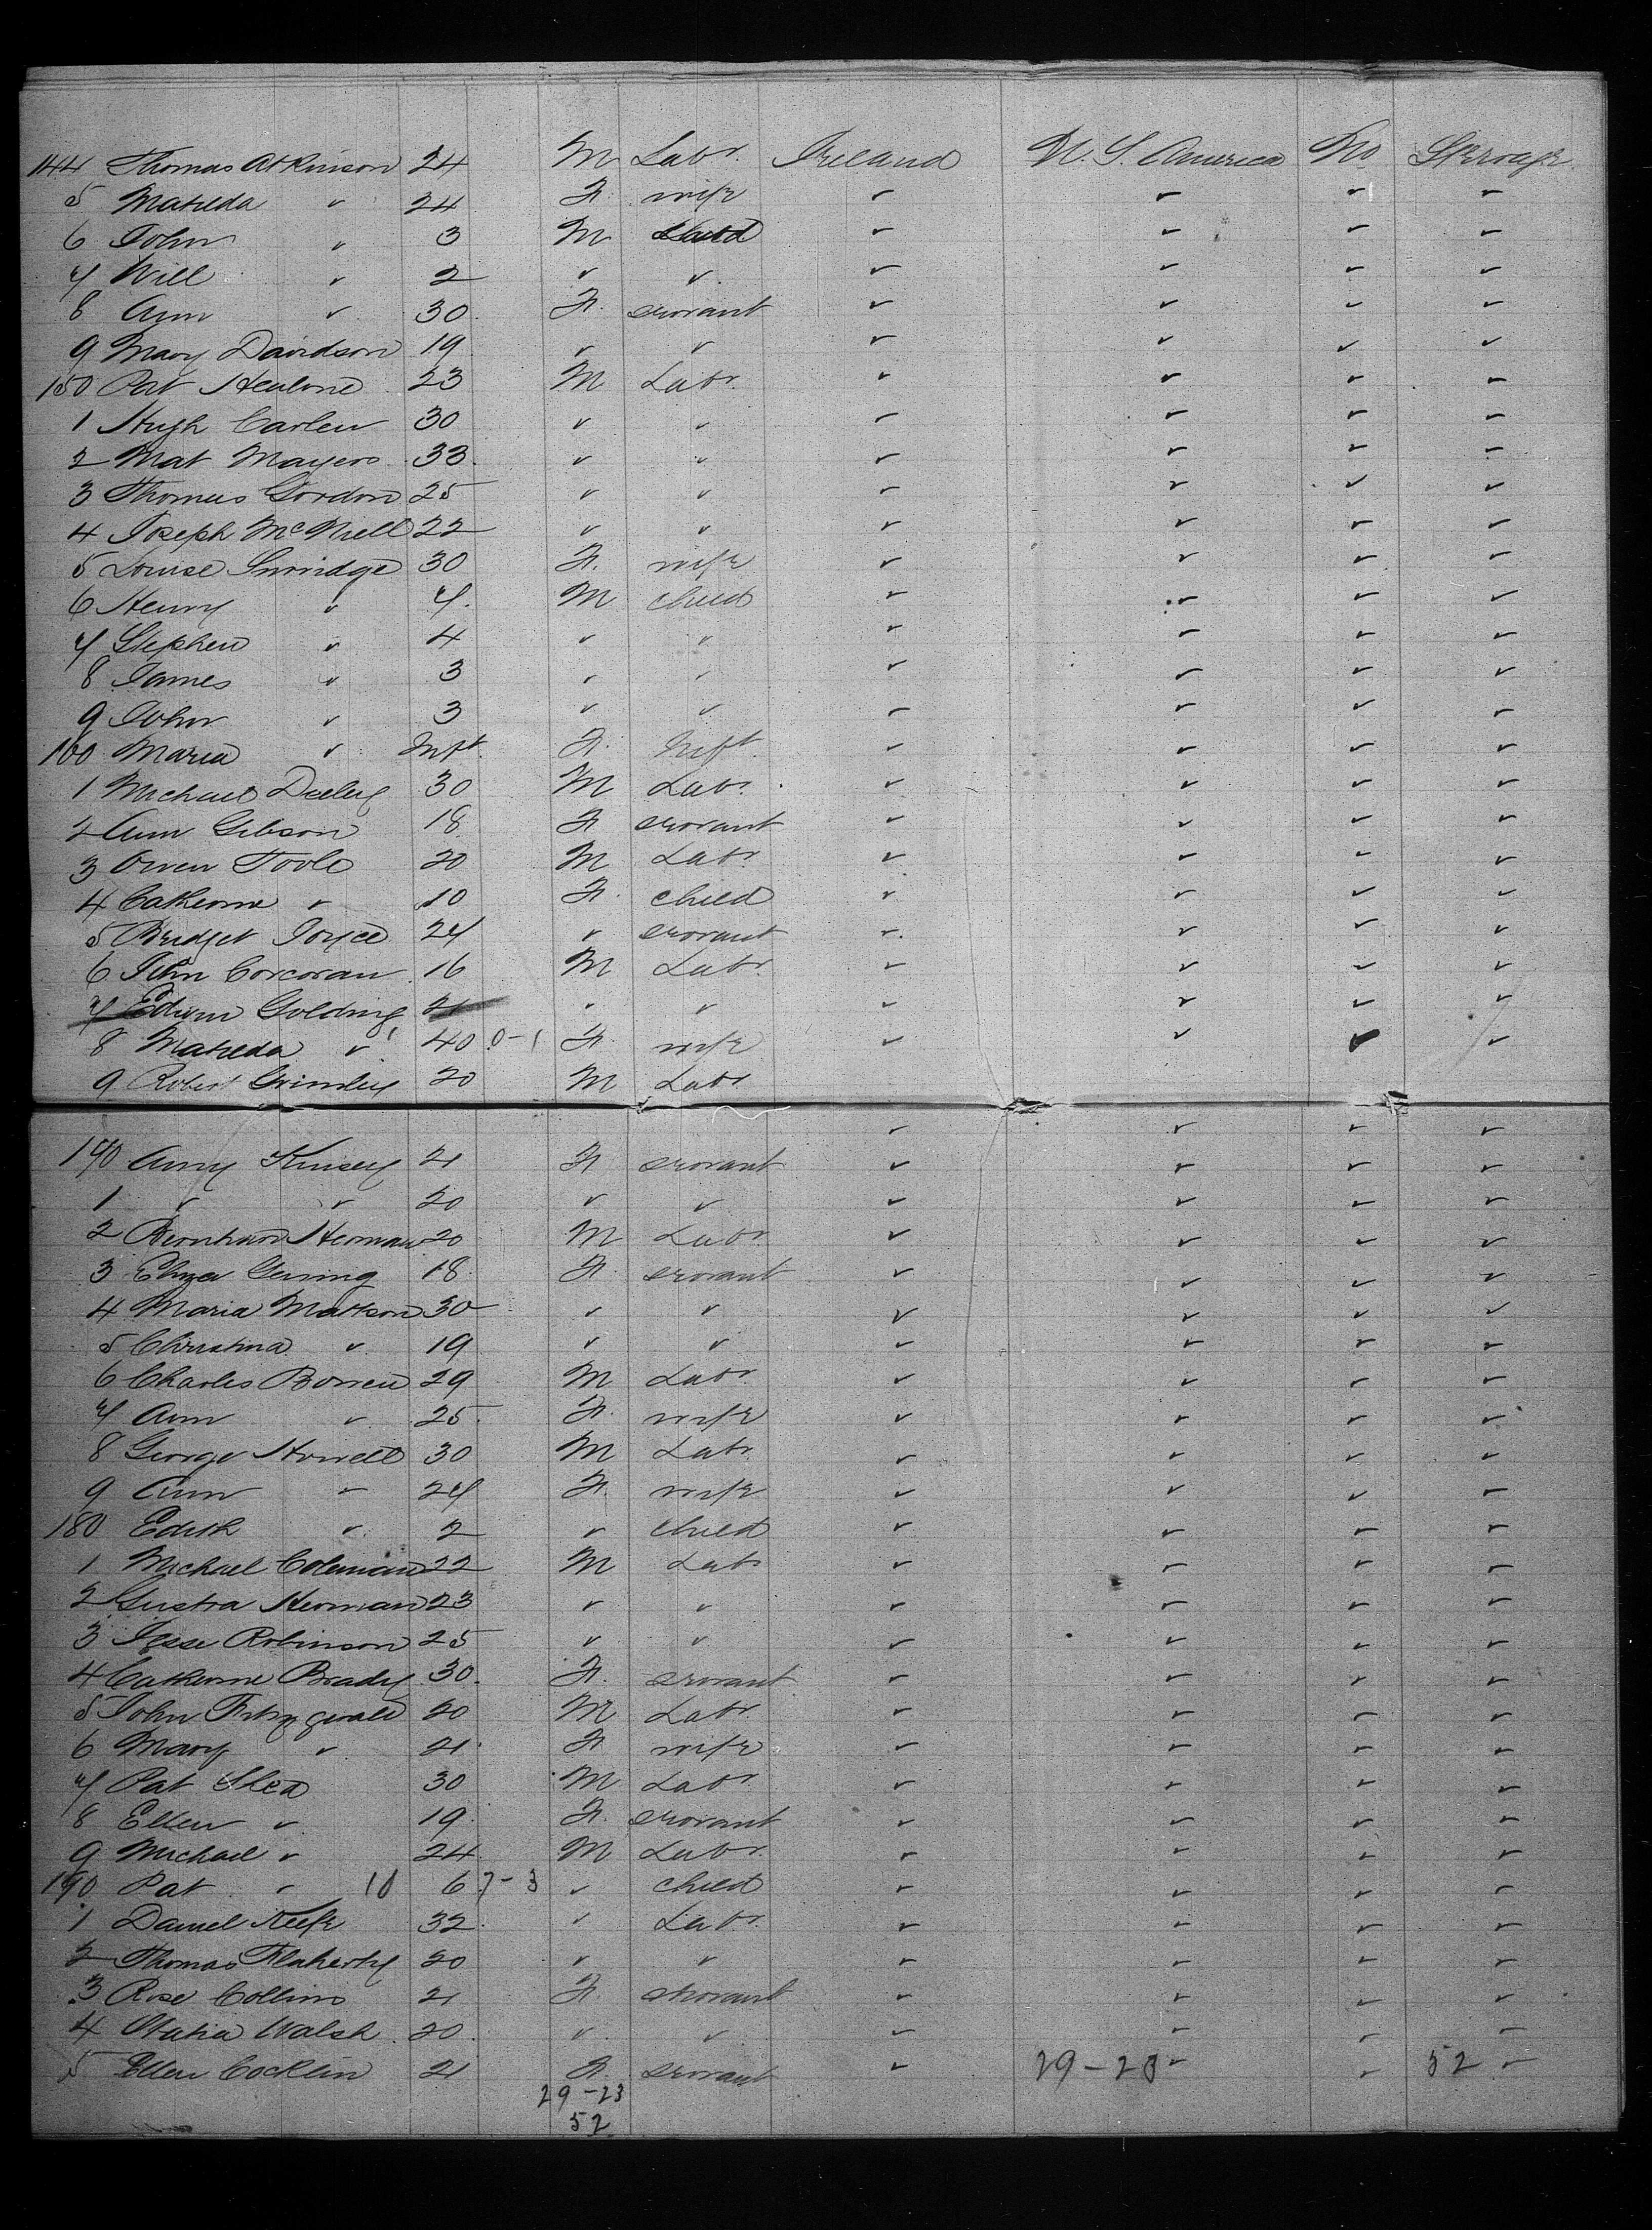 144 Thomas Atkinson 24 M Labr. Ireland U. S. America No Steerage
5 Matilda " 24 F. wife " " " "
6 John " 3 M Child " " " "
7 Will " 2 " " " " " "
8 Ann " 30 F. servant " " " "
9 Mary Davidson 19 " " " " " "
150 Pat 23 M Labr. " " " "
1 Hugh Carlen 30 " " " " " "
2 Mat Mayers 33 " " " " " "
3 Thomas Gordon 25 " " " " " "
4 Joseph McNiell 22 " " " " " "
5 Louise 30 F. wife " " " "
6 Henry " 7. M child " " " "
7 Stephen " 4 " " " " " "
8 James " 3 " " " " " "
9 John " 3 " " " " " "
160 Maria " Inft. F. Inft. " " " "
1 Michael 30 M Labr. " " " "
2 Ann Gibson 18 F servant " " " "
3 Owen Toole 20 M Labr " " " "
4 Catherine " 10 F. child " " " "
5 Bridget Joyce 27 " servant " " " "
6 John Corcoran 16 M Labr. " " " "
7 Edwin Golding 21 " " " " " "
8 Matilda " 40 0-1 F. wife " " " "
9 Robert Grimley 20 M Labr " " " "
170 Amy Kinsey 21 F servant " " " "
1 " " 20 " " " " " "
2 Bernhard Herman 20 M Labr. " " " "
3 Eliza 18 F. servant " " " "
4 Maria Matson 30 " " " " " "
5 Christina " 19 " " " " " "
6 Charles Bowen 29 M Labr. " " " "
7 Ann " 25. F. wife " " " "
8 George Howell 30 M Labr. " " " "
9 Ann " 27 F. wife " " " "
180 Edith " 2 " child " " " "
1 Michael Coleman 22 M Labr " " " "
2 Herman 23 " " " " " "
3 Jesse Robinson 25 " " " " " "
4 Catherine Brady 30. F. servant " " " "
5 John Fitzgerald 20 M Labr. " " " "
6 Mary " 21 F wife " " " "
7 Pat Shea 30 M Labr. " " " "
8 Ellen " 19. F. servant " " " "
9 Michael " 24 M Labr. " " " "
190 Pat " 10 6 7-3 " child " " " "
1 Daniel Keefe 32 " Labr. " " " "
2 Thomas Flaherty 20 " " " " " "
3 Rose Collins 21 F. servant " " " "
4 Walsh 20 " " " " " "
5 Ellen Cocklin 21 F. servant " 29-23 " " 52 "
29-23
52